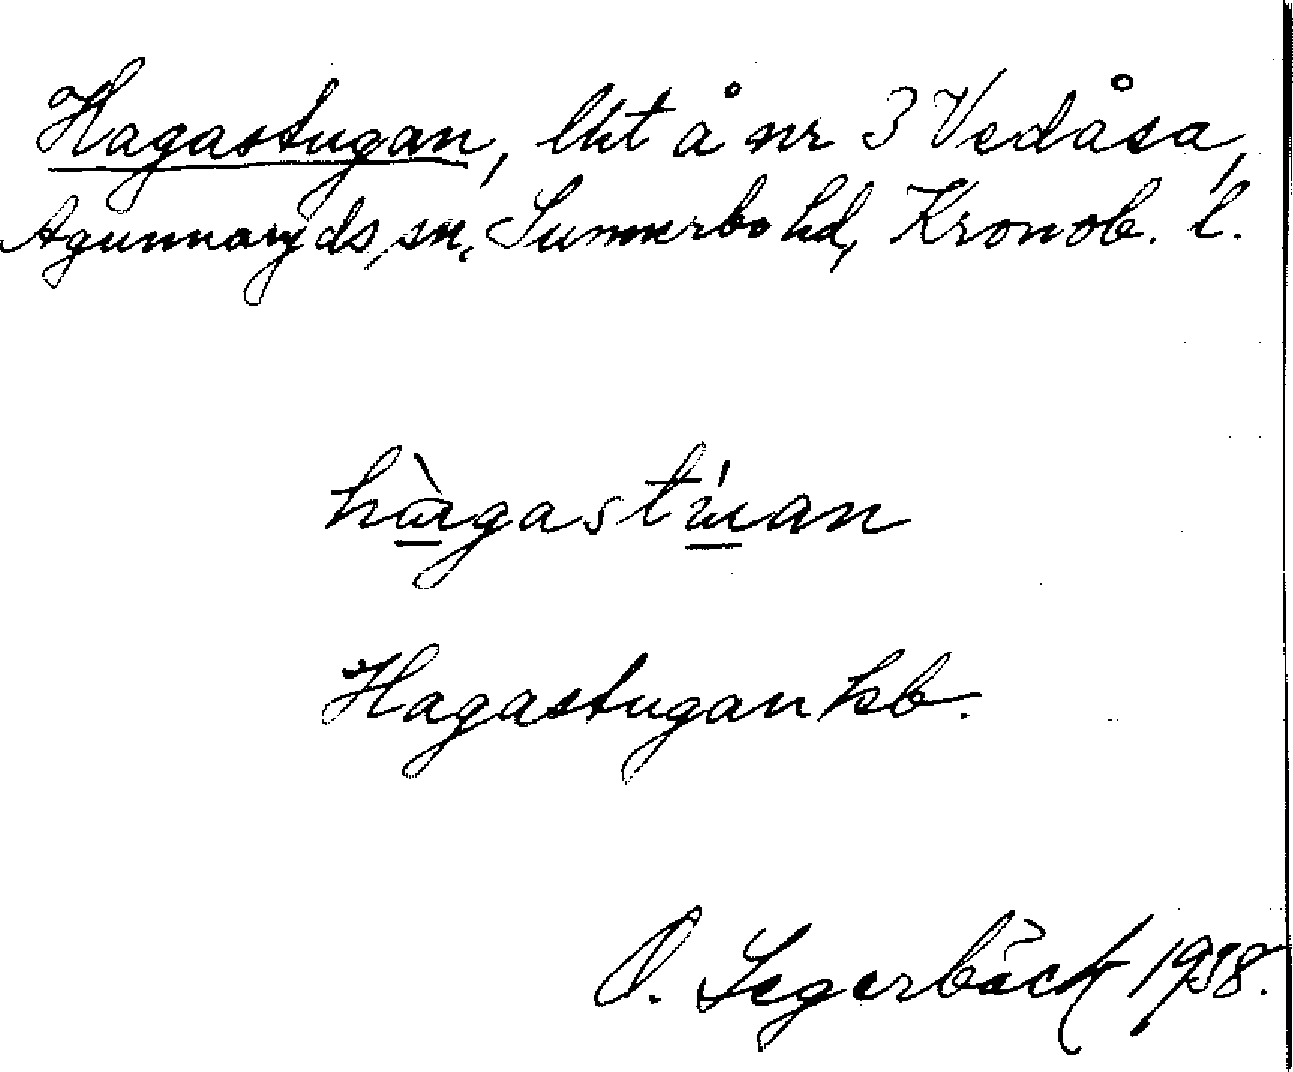 Hagastugan, lht å nr 3 Vedåsa,
Agunnaryds sn, Sunnerbo hd, Kronob. l.
hàgastúan
Hagastugan kb.
O. Segerbäck 1938.